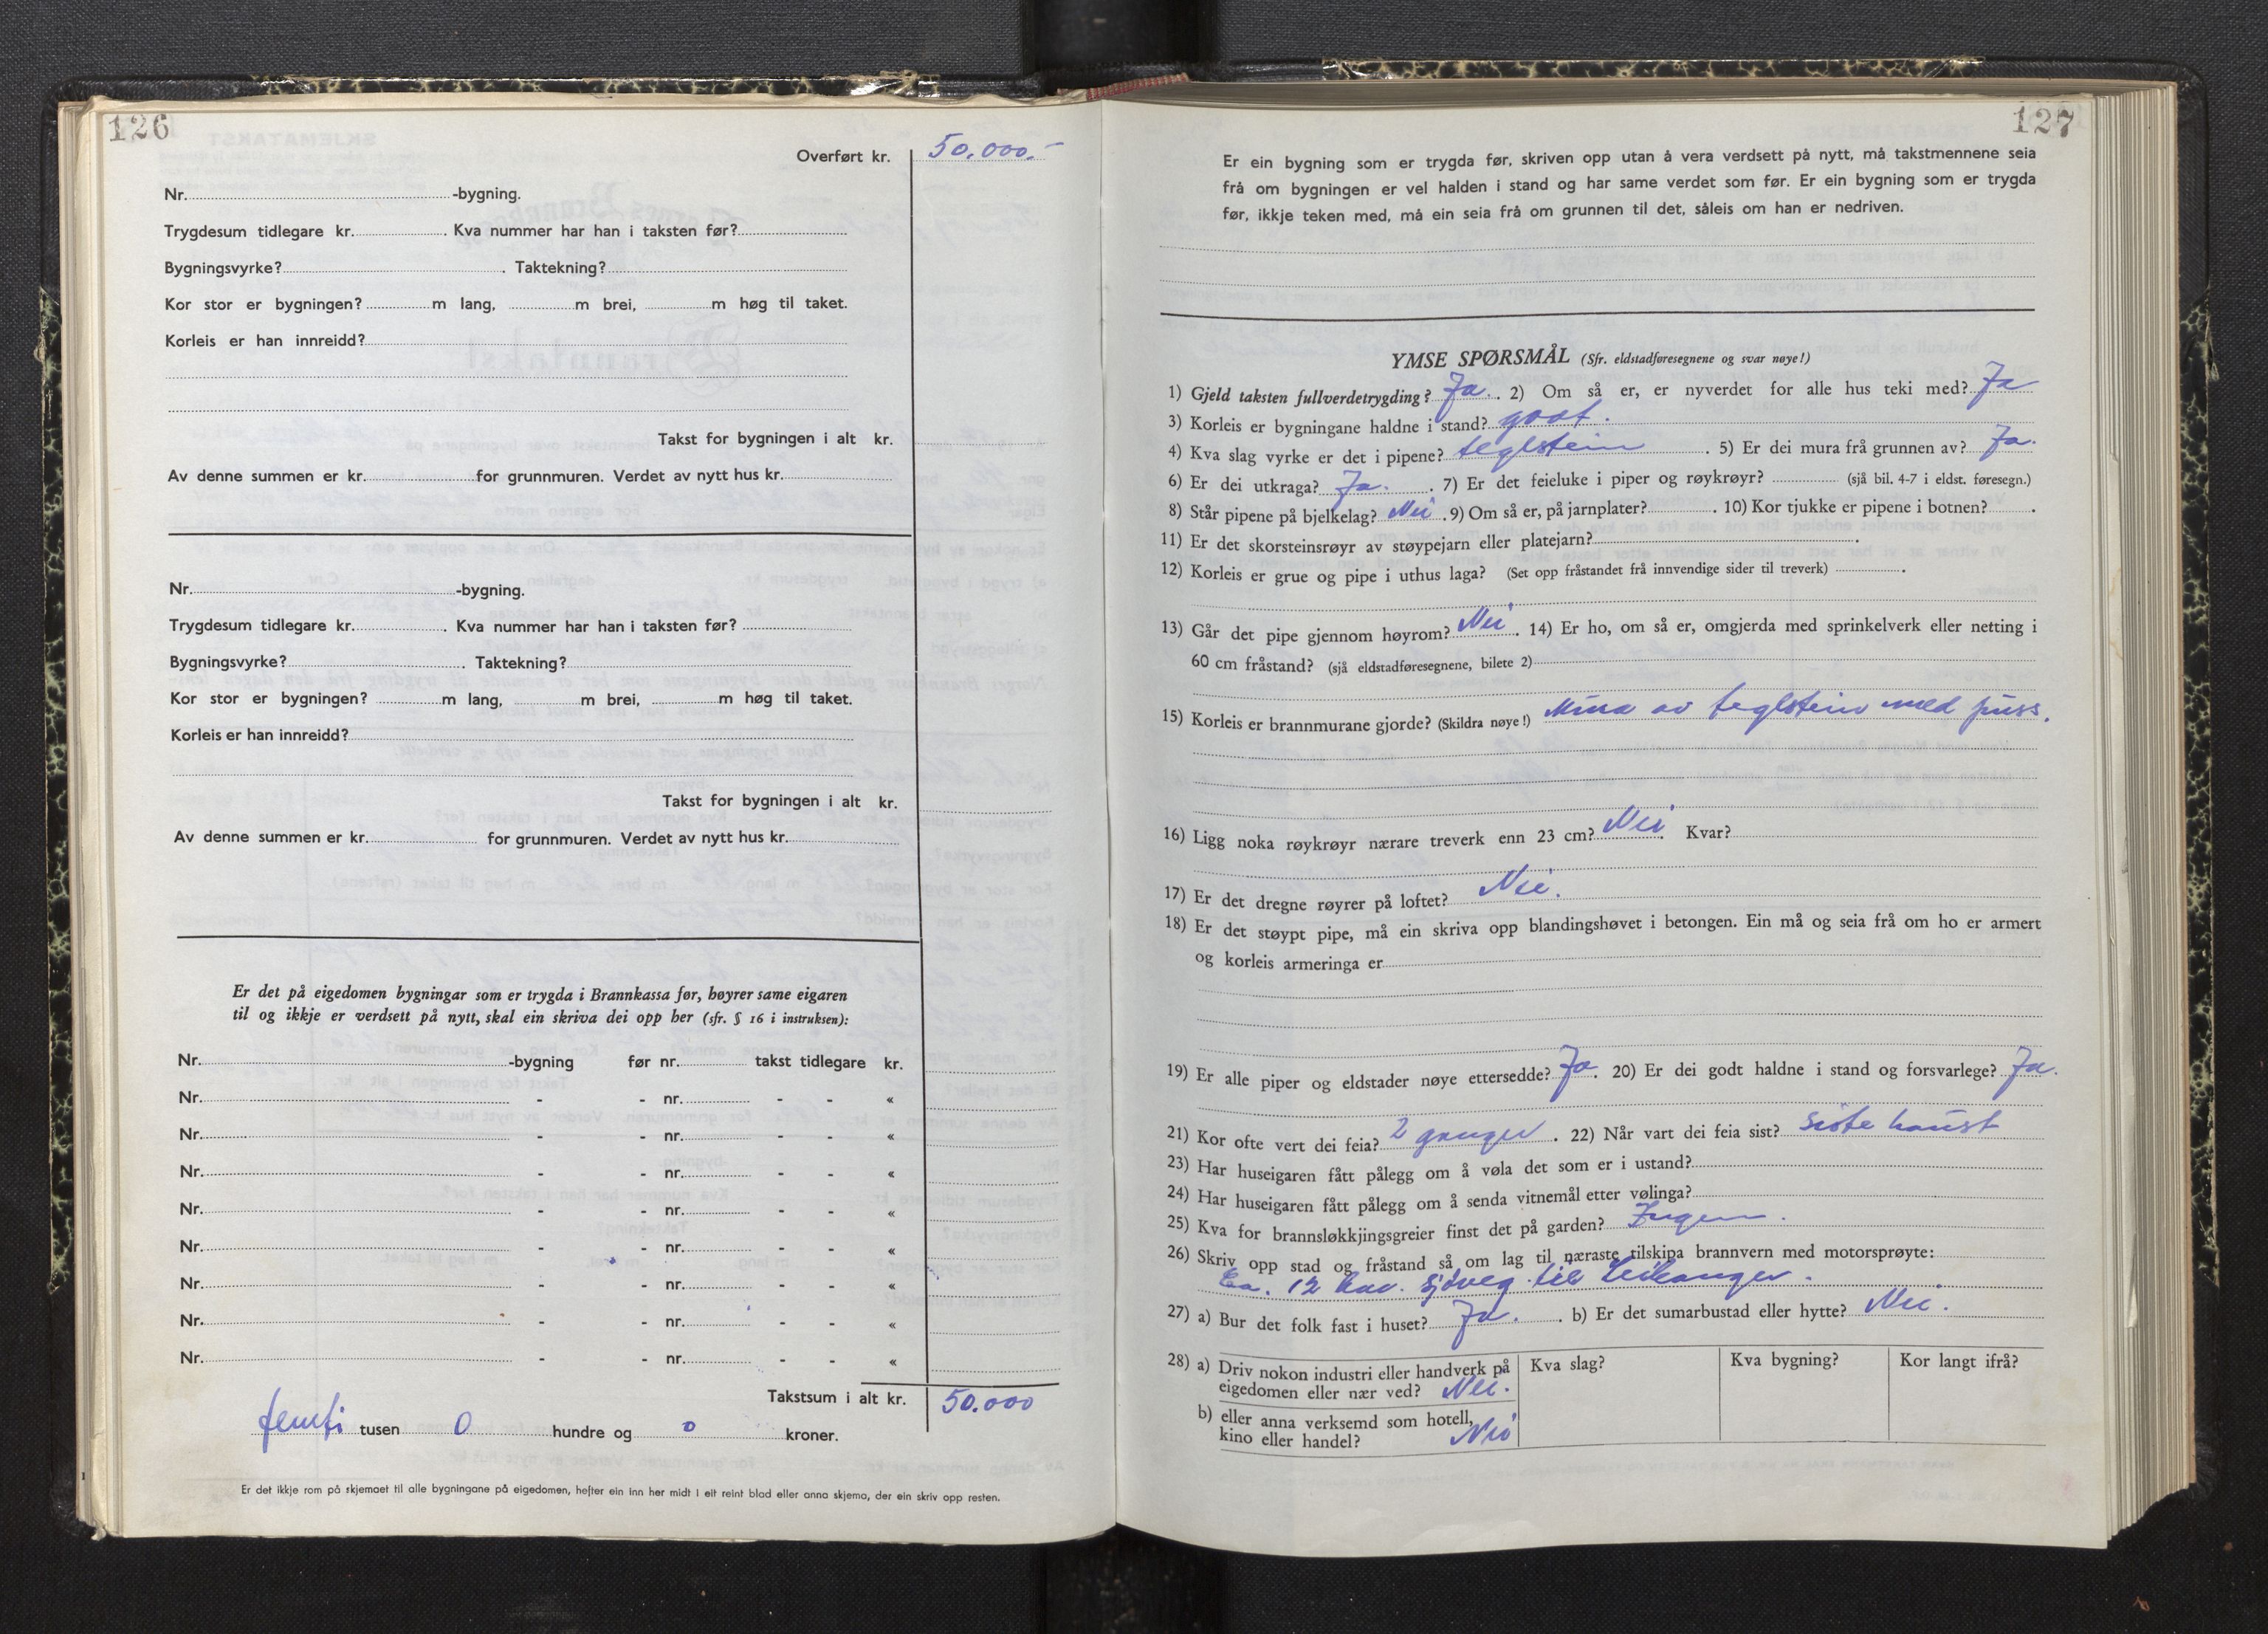 126
Overført kr. 50.000.-
Nr. -bygning.
Trygdesum tidlegare kr. . Kva nummer har han i taksten før?
Bygningsvyrke? . Taktekning?
Kor stor er bygningen? m lang, m brei, m høg til taket.
Korleis er han innreidd?
Takst for bygningen i alt kr.
Av denne summen er kr. for grunnmuren. Verdet av nytt hus kr.
Nr. -bygning.
Trygdesum tidlegare kr. . Kva nummer har han i taksten før?
Bygningsvyrke? . Taktekning?
Kor stor er bygningen? m lang, m brei, m høg til taket.
Korleis er han innreidd?
Takst for bygningen i alt kr.
Av denne summen er kr. for grunnmuren. Verdet av nytt hus kr.
Er det på eigedomen bygningar som er trygda i Brannkassa før, høyrer same eigaren
til og ikkje er verdsett på nytt, skal ein skriva dei opp her (sfr. § 16 i instruksen):
Nr. -bygning før nr. takst tidlegare kr.
Nr. - - nr. - - «
Nr. - - nr. - - «
Nr. - - nr. - - «
Nr. - - nr. - - «
Nr. - - nr. - - «
Nr. - - nr. - - «
Nr. - - nr. - - «
Nr. - - nr. - - «
Takstsum i alt kr. 50.000
femti tusen 0 hundre og 0 kroner.
Er det ikkje rom på skjemaet til alle bygningane på eigedomen, hefter ein inn her midt i eit reint blad eller anna skjema, der ein skriv opp resten.
127
Er ein bygning som er trygda før, skriven opp utan å vera verdsett på nytt, må takstmennene seia
frå om bygningen er vel halden i stand og har same verdet som før. Er ein bygning som er trygda
før, ikkje teken med, må ein seia frå om grunnen til det, såleis om han er nedriven.
YMSE SPØRSMÅL (Sfr. eldstadføresegnene og svar nøye!)
1) Gjeld taksten fullverdetrygding? Ja. . 2) Om så er, er nyverdet for alle hus teki med? Ja
3) Korleis er bygningane haldne i stand? godt.
4) Kva slag vyrke er det i pipene? teglstein . 5) Er dei mura frå grunnen av? Ja.
6) Er dei utkraga? Ja. . 7) Er det feieluke i piper og røykrøyr? (sjå bil. 4-7 i eldst. føresegn.)
8) Står pipene på bjelkelag? Nei . 9) Om så er, på jarnplater? . 10) Kor tjukke er pipene i botnen? .
11) Er det skorsteinsrøyr av støypejarn eller platejarn? .
12) Korleis er grue og pipe i uthus laga? (Set opp fråstandet frå innvendige sider til treverk) .
13) Går det pipe gjennom høyrom? Nei . 14) Er ho, om så er, omgjerda med sprinkelverk eller netting i
60 cm fråstand? (sjå eldstadføresegnene, bilete 2)
15) Korleis er brannmurane gjorde? (Skildra nøye!) Mura av teglstein med puss.
16) Ligg noka røykrøyr nærare treverk enn 23 cm? Nei Kvar?
17) Er det dregne røyrer på loftet? Nei.
18) Er det støypt pipe, må ein skriva opp blandingshøvet i betongen. Ein må og seia frå om ho er armert
og korleis armeringa er
19) Er alle piper og eldstader nøye ettersedde? Ja . 20) Er dei godt haldne i stand og forsvarlege? Ja.
21) Kor ofte vert dei feia? 2 gonger . 22) Når vart dei feia sist? siste haust
23) Har huseigaren fått pålegg om å vøla det som er i ustand?
24) Har huseigaren fått pålegg om å senda vitnemål etter vølinga?
25) Kva for brannsløkkjingsgreier finst det på garden? Ingen.
26) Skriv opp stad og fråstand så om lag til næraste tilskipa brannvern med motorsprøyte:
Ca. 12 km. sjöveg til Leikanger.
27) a) Bur det folk fast i huset? Ja. . b) Er det sumarbustad eller hytte? Nei.
28) a) Driv nokon industri eller handverk på eigedomen eller nær ved? Nei. Kva slag? Kva bygning? Kor langt ifrå?
b) eller anna verksemd som hotell, kino eller handel? Nei